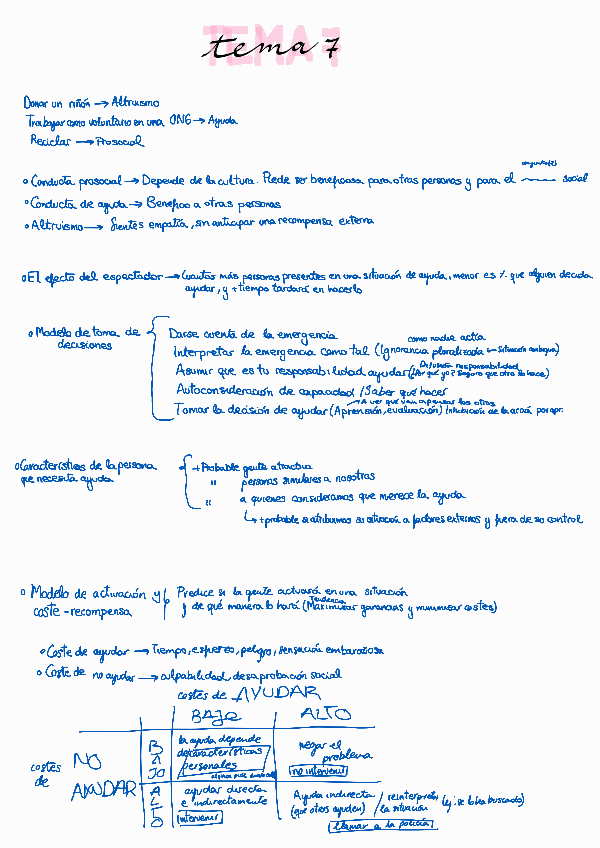 TEMA 7
tema 7
Donar un riñón → Altruismo
Trabajar como voluntario en una ONG → Ayuda
Reciclar → Prosocial
Conducta prosocial → Depende de la cultura. Puede ser beneficiosa para otras personas y para el social
Conducta de ayuda → Beneficio a otras personas
Altruismo → Sientes empatía, sin anticipar una recompensa externa
El efecto del espectador → Cuantas más personas presentes en una situación de ayuda, menor es % que alguien decida
ayudar, y + tiempo tardará en hacerlo
Modelo de toma de decisiones
Darse cuenta de la emergencia
como nadie actúa
Interpretar la emergencia como tal (Ignorancia pluralizada ← Situación ambigua)
Difusión responsabilidad
Asumir que es tu responsabilidad ayudar (¿Por qué yo? Seguro que otro lo hace)
Autoconsideración de capacidad / Saber qué hacer
→ A ver qué van a pensar los otros
Tomar la decisión de ayudar (Aprensión, evaluación) Inhibición de la acción por apr.
Características de la persona
que necesita ayuda
+ Probable gente atractiva
" personas similares a nosotros
" a quienes consideramos que merece la ayuda
↳ + probable si atribuimos su situación a factores externos y fuera de su control
Modelo de activación y
coste - recompensa
Predice si la gente actuará en una situación
Tendencia
y de qué manera lo hará (Maximizar ganancias y minimizar costes)
Coste de ayudar → Tiempo, esfuerzo, peligro, sensación embarazosa
Coste de no ayudar → culpabilidad, desaprobación social
costes de AYUDAR
BAJO ALTO
costes de NO AYUDAR
BAJO
la ayuda depende
de características
personales
negar el
problema
no intervenir
ALTO
ayudar directa
e indirectamente
intervenir
Ayuda indirecta
(que otros ayuden)
/ reinterpretar
la situación
(ej: se lo ha buscado)
llamar a la policía